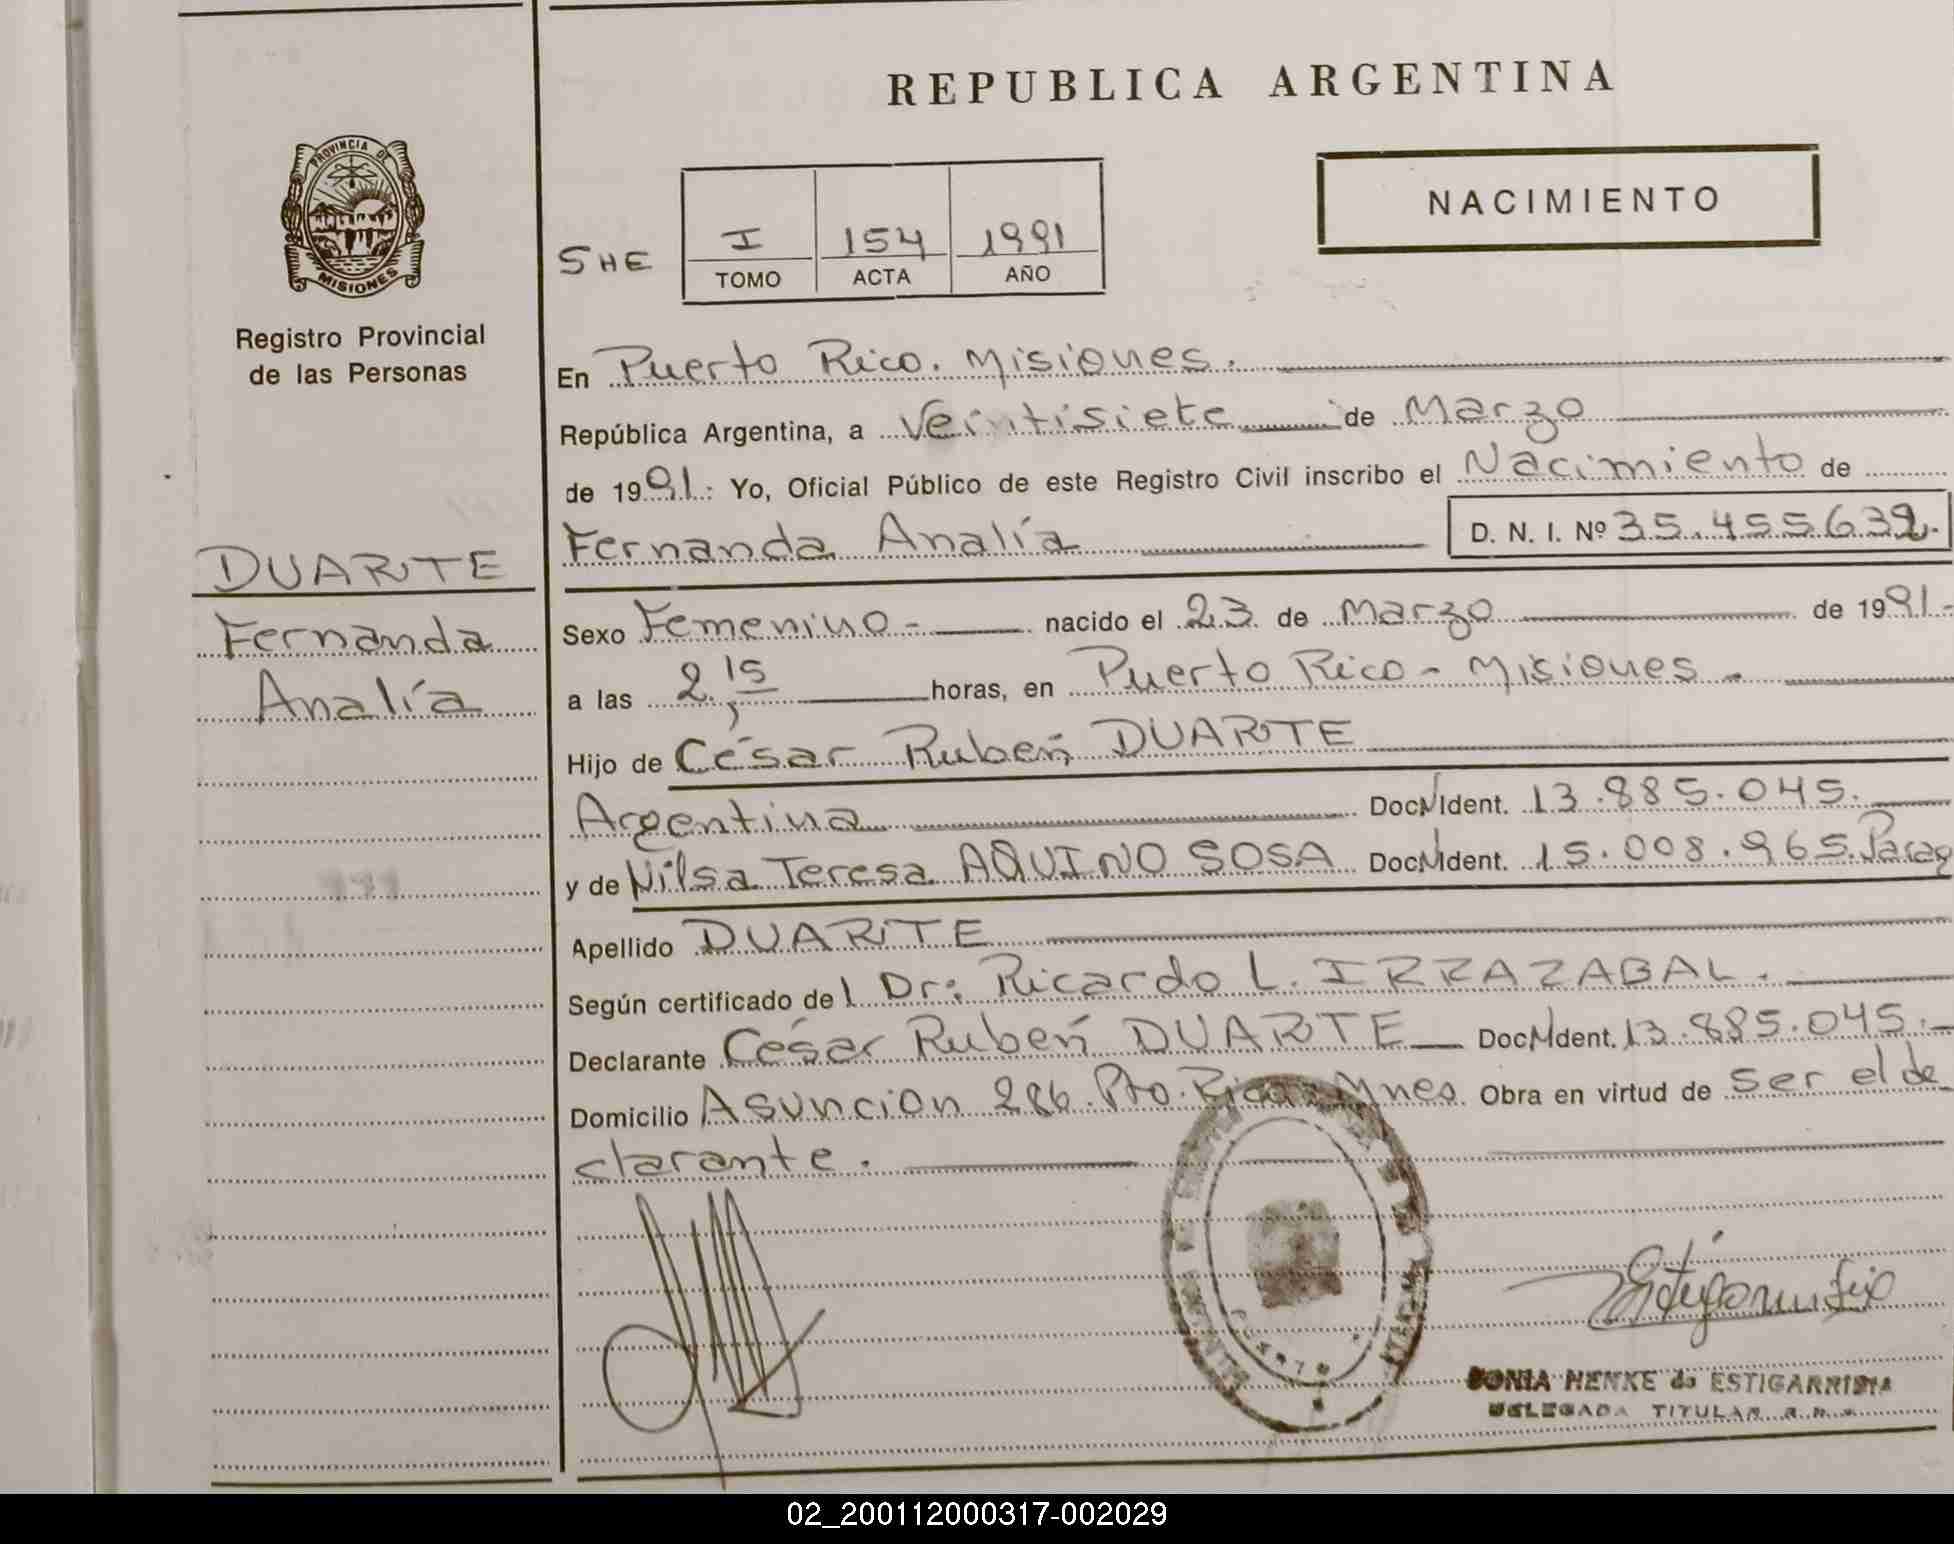 REPUBLICA ARGENTINA
PROVINCIA DE
MISIONES
Registro Provincial
de las Personas
NACIMIENTO
SHE
I 154 1991
TOMO ACTA AÑO
En Puerto Rico. Misiones.
República Argentina, a Veintisiete de Marzo
de 1991. Yo, Oficial Público de este Registro Civil inscribo el Nacimiento de
Fernanda Analía D. N. I. Nº 35.455.639.
DUARTE
Fernanda
Analía
Sexo Femenino - nacido el 23 de Marzo de 1991.-
a las 2,15 horas, en Puerto Rico - Misiones.
Hijo de César Rubén DUARTE
Argentina Doc. N Ident. 13.885.045.
y de Nilsa Teresa AQUINO SOSA Doc. N Ident. 15.008.965. Parag
Apellido DUARTE
Según certificado del Dr: Ricardo L. IRRAZABAL.
Declarante César Rubén DUARTE Doc. N Ident. 13.885.045.-
Domicilio Asuncion 286. Pto. Rico - Mnes. Obra en virtud de ser el de
clarante.
SONIA HENKE de ESTIGARRIBIA
DELEGADA TITULAR
02_200112000317-002029